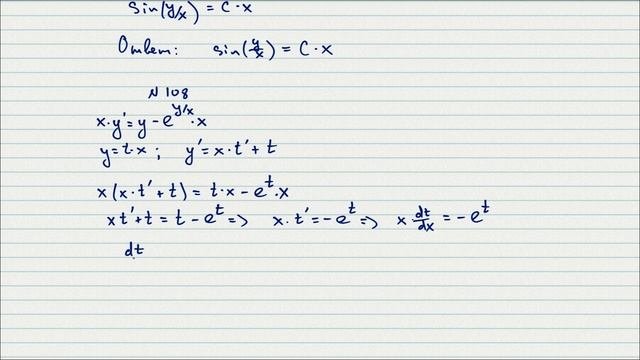 sin(y/x) = C·x
Ответ: sin(y/x) = C·x
N 108
x·y' = y - e^{y/x}·x
y = t·x ; y' = x·t' + t
x(x·t' + t) = t·x - e^t·x
xt' + t = t - e^t => x·t' = -e^t => x dt/dx = -e^t
dt